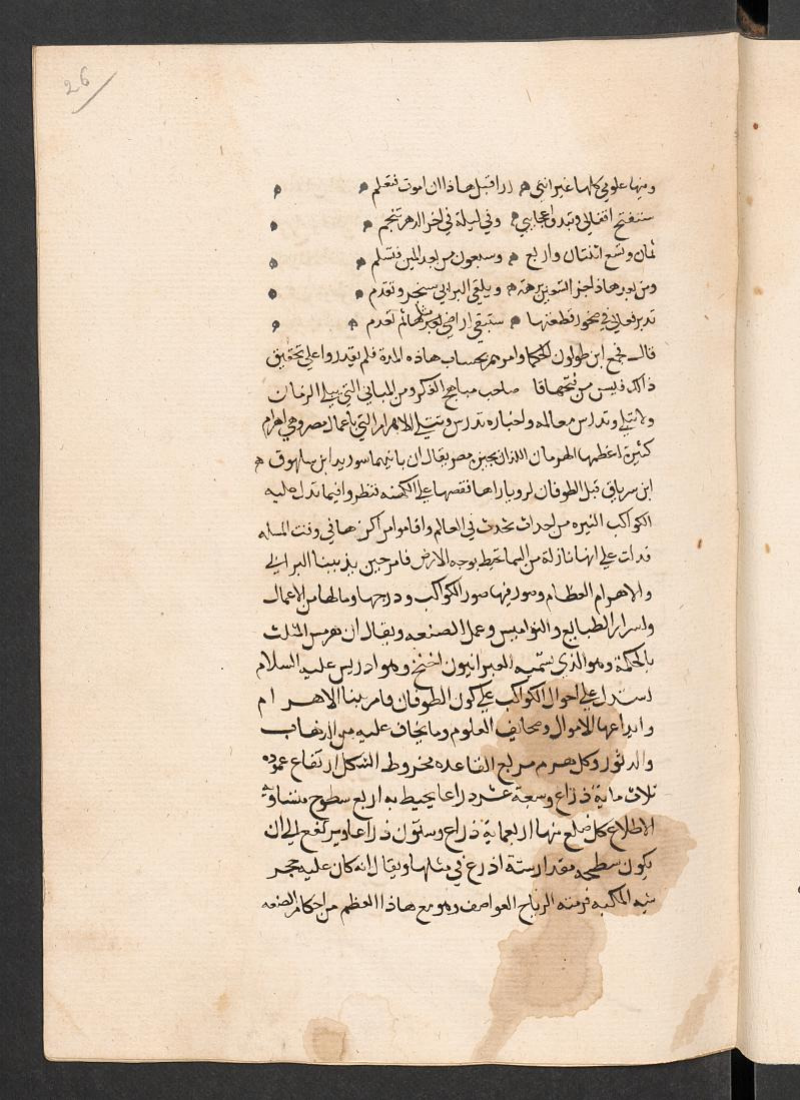 26
ومنها علومي كلها غير انني ارا قبل هاذا ان اموت فتعلم
ستفتح اقفالي وتبدو عجايبي وفي ليلة في اخر الدهر تنجم
ثمان وتسع اثنتان واربع وسبعون من بعد المين فتسلم
ومن بعد هاذا جز التسعين برهة ويلقي البرابي سخر وتقدم
تدبر فعالي في صخور قطعتها ستبقي اراضي بعدها ثم تعدم
قال فجمع ابن طولون الحكما وامرهم بحساب هاذه المدة فلم يقدروا علي تحقيق
ذالك فيس من فتحها قا صاحب مباهج الفكر ومن المباني التي يبلي الزمان
ولا تبلي وتدرس معالمه واخباره تدرس وتبلي الاهرام التي باعمال مصر وهي اهرام
كثيرة اعظمها الهرمان اللذان بجيزة مصر يقال ان بانيهما سوريد ابن سهلوق
ابن سرياق قبل الطوفان لرويا راها فقصها علي الكهنه فنظروا فيما تدل عليه
الكواكب النيره من احداث تحدث في العالم واقاموا مراكزها في وقت المسله
فدلت علي انها نازلة من السما تحيط بوجه الارض فامر حين يذ ببنا البرابي
والاهرام العظام وصور فيها صور الكواكب ودرجها وما لها من الاعمال
واسرار الطبايع والنواميس وعمل الصنعه ويقال ان هرمس المثلث
بالحكمة وهو الذي يسميه العبرانيون اخنخ وهو ادريس عليه السلام
استدل علي احوال الكواكب علي كون الطوفان فامر ببنا الاهرام
وايداعها الاموال وصحايف العلوم وما يخاف عليه من الذهاب
والدثور وكل هرم مربع القاعده مخروط الشكل ارتفاع عموده
ثلاث ماية ذراع وسبعة عشر ذراعا يحيط به اربع سطوح متساوية
الاضلاع كل ضلع منها اربعماية ذراع وستون ذراعا ويرتفع الي ان
يكون سطحه مقدار ستة اذرع في مثلها ويقال انه كان عليه حجر
شبه المكبه فرمته الرياح العواصف وهو مع هاذا العظم من احكام الصنعه